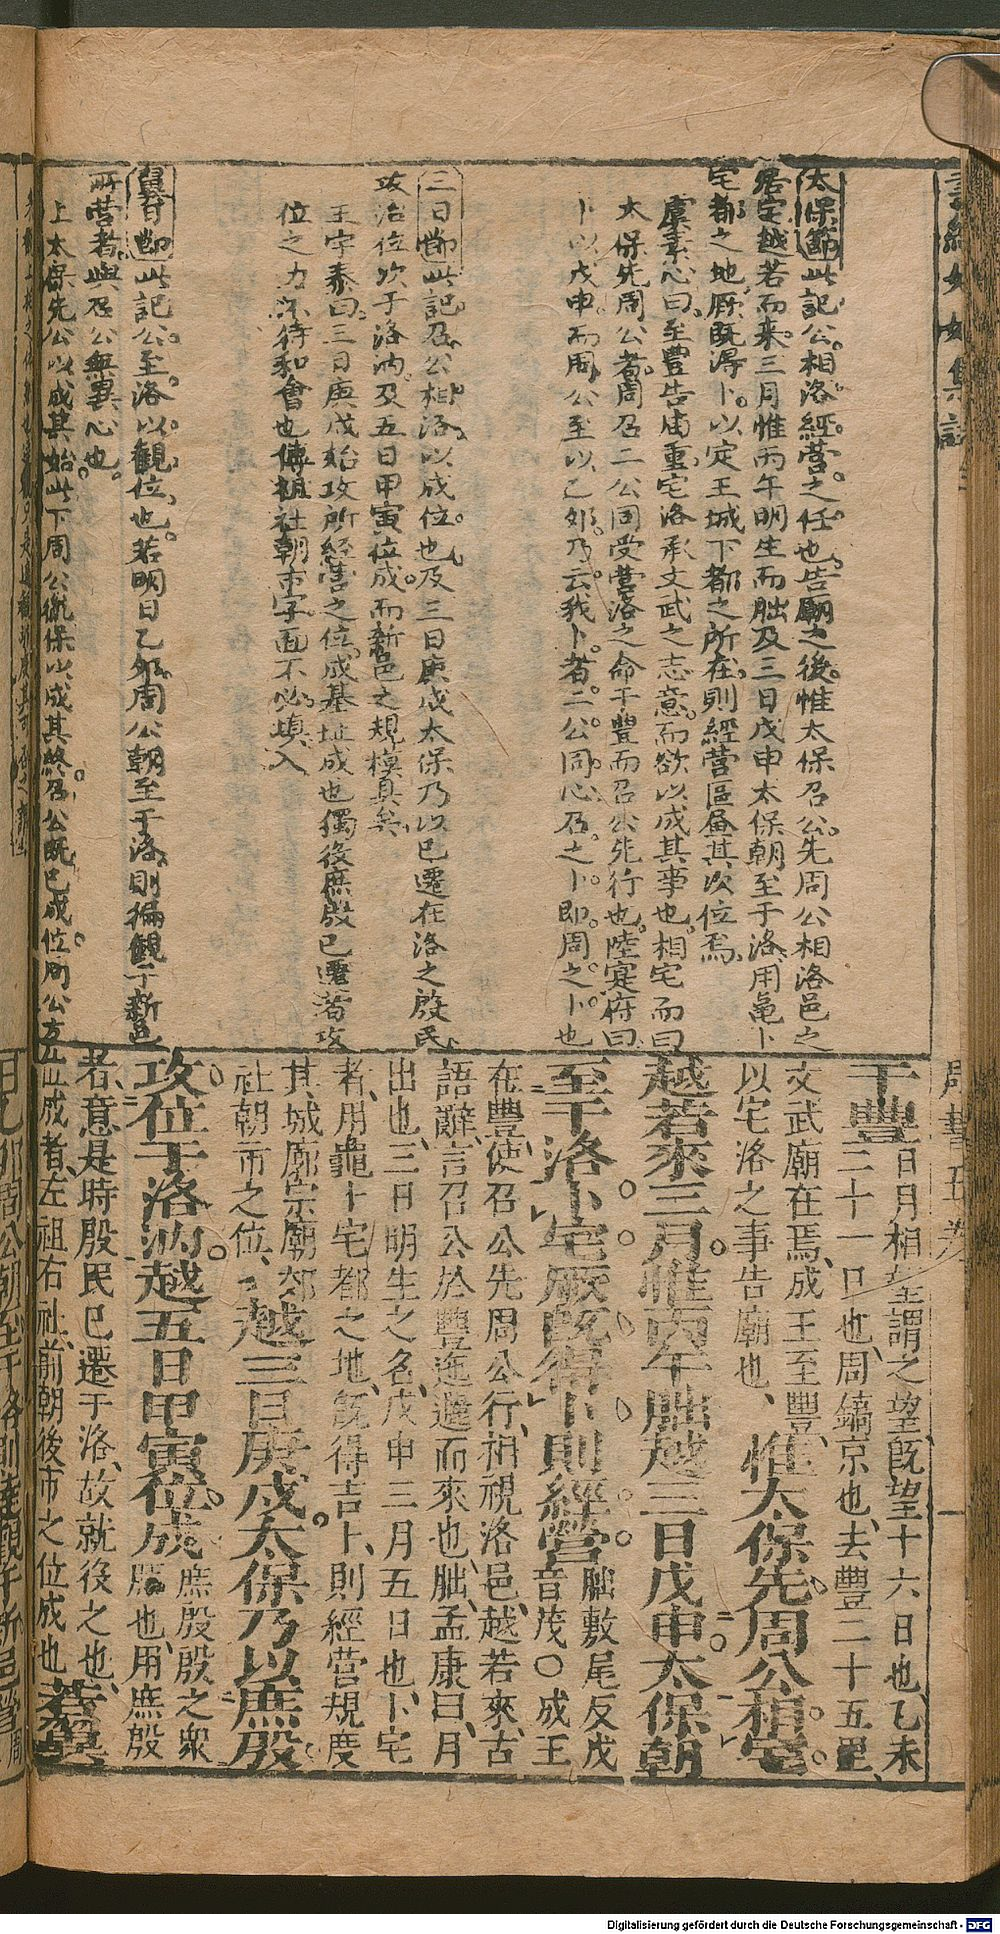 太保節此記公相洛經營之任也告廟之後惟太保召公先周公相洛邑之
居宅越若而來三月惟丙午明生而朏及三日戊申太保朝至于洛用龜卜
宅都之地厥既得卜以定王城下都之所在則經營區畫其次位焉
虞素心曰至豐告庙重宅洛承文武之志意而欲以成其事也相宅而曰
太保先周公者周召二公同受營洛之命于豐而召公先行也陸寔府曰
卜以戊申而周公至以乙卯乃云我卜者二公同心召之卜即周之卜也
三日節此記召公相洛以成位也及三日庚戌太保乃以已遷在洛之殷民
攻治位次于洛汭及五日甲寅位成而新邑之規模具矣
王宇泰曰三日庚戌始攻所經營之位成基址成也獨役庶殷已遷者攻
位之力不待和會也傳祖社朝市字面不必填入
翼日節此記公至洛以觀位也若明日乙卯周公朝至于洛則徧觀于新邑
所營者與召公無異心也
上太保先公以成其始此下周公継保以成其終召公既已成位周公方
于豐日月相望謂之望既望十六日也乙未
二十一日也周鎬京也去豐二十五里
文武廟在焉成王至豐
以宅洛之事告廟也惟太保先周公相宅
越若來三月惟丙午朏越三日戊申太保朝
至于洛卜宅厥既得卜則經營朏敷尾反戊
音茂○成王
在豐使召公先周公行相視洛邑越若來古
語辭言召公於豐迤邐而來也朏孟康曰月
出也三日明生之名戊申三月五日也卜宅
者用龜卜宅都之地既得吉卜則經營規度
其城廓宗廟郊
社朝市之位越三日庚戌太保乃以庶殷
攻位于洛汭越五日甲寅位成庶殷殷之衆
庶也用庶殷
者意是時殷民已遷于洛故就役之也
位成者左祖右社前朝後市之位成也若翼
日乙卯周公朝至于洛則達觀于新邑營周
Digitalisierung gefördert durch die Deutsche Forschungsgemeinschaft - DFG